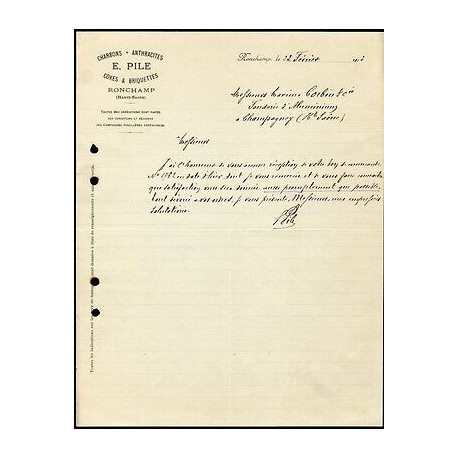 CHARBONS + ANTHRACITES
E. PILE
COKES & BRIQUETTES
RONCHAMP
(HAUTE-SAÔNE)
TOUTES MES EXPÉDITIONS SONT FAITES
AUX CONDITIONS ET RÉSERVES
DES COMPAGNIES HOUILLÈRES EXPÉDITRICES
Ronchamp, le 22 Février 191
Messieurs Corbin & Cie
Fonderie d'Aluminium
à Champagney (Hte Saône)
Messieurs
J'ai l'honneur de vous accuser réception de votre bon de commande
No en date d'hier dont je vous remercie et de vous faire connaître
que satisfaction vous sera donnée aussi promptement que possible.
Tout dévoué à vos ordres, je vous présente, Messieurs, mes empressées
salutations.
Pile
Toutes les indications sur les prix de transport sont données à titre de renseignements et sans garantie.